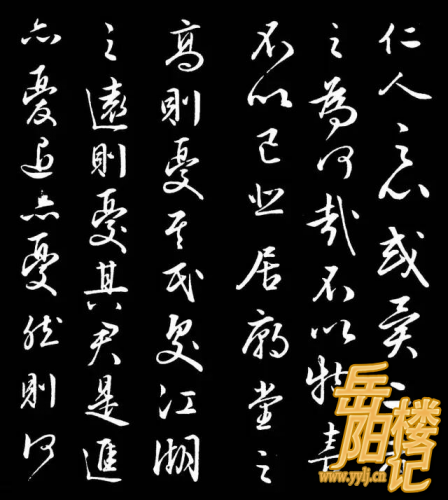 仁人之心或異二者
之為何哉不以物喜
不以己悲居廟堂之
高則憂其民處江湖
之遠則憂其君是進
亦憂退亦憂然則何
岳阳楼记
www.yylj.cn